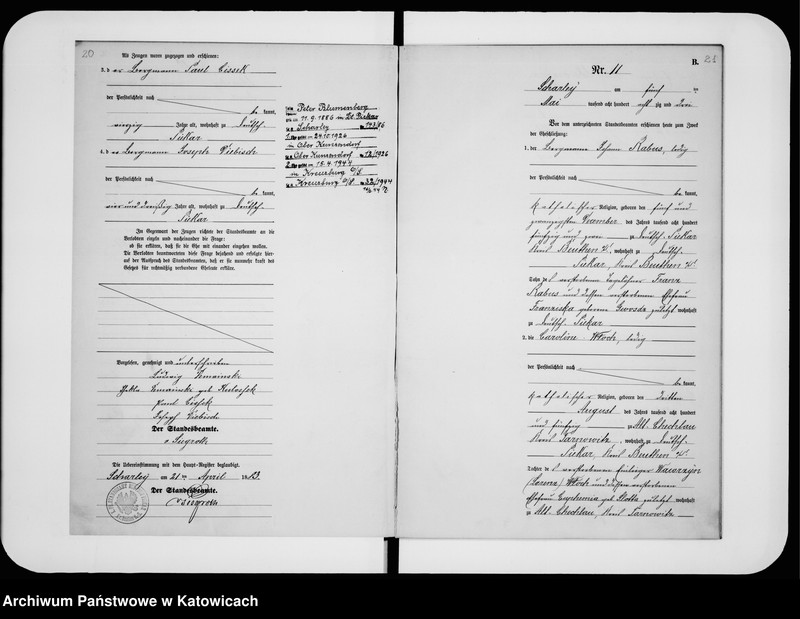 20
Als Zeugen waren zugezogen und erschienen:
3. d er Bergmann Paul Cissek
der Persönlichkeit nach
be kannt,
vierzig Jahre alt, wohnhaft zu Deutsch-
Piekar
4. d er Bergmann Joseph Wiebisch
der Persönlichkeit nach
be kannt,
vier und dreißig Jahre alt, wohnhaft zu Deutsch-
Piekar
In Gegenwart der Zeugen richtete der Standesbeamte an die
Verlobten einzeln und nacheinander die Frage:
ob sie erklären, daß sie die Ehe mit einander eingehen wollen.
Die Verlobten beantworteten diese Frage bejahend und erfolgte hier-
auf der Ausspruch des Standesbeamten, daß er sie nunmehr kraft des
Gesetzes für rechtmäßig verbundene Eheleute erkläre.
Vorgelesen, genehmigt und unterschrieben
Ludwig
Paul Cissek
Der Standesbeamte.
Die Uebereinstimmung mit dem Haupt-Register beglaubigt.
Scharley am 21 ten April 1883.
Der Standesbeamte.
Peter Blumenberg
am 11.9.1886 in Dt. Piekar
Scharley
am 24.10.1926
in Ober Kunzendorf
Ober Kunzendorf 12/1926
am 15.4.1944
in Kreuzburg O/S
Kreuzburg O/S 32/1944
B.
21
Nr. 11
Scharley am fünf ten
Mai tausend acht hundert acht zig und drei
Vor dem unterzeichneten Standesbeamten erschienen heute zum Zweck
der Eheschließung:
1. der Bergmann Johann Rabus, ledig
der Persönlichkeit nach
be kannt,
katholischer Religion, geboren den fünf und
zwanzigsten des Jahres tausend acht hundert
fünfzig und zwei zu Deutsch-Piekar
Kreis Beuthen O/S, wohnhaft zu Deutsch-
Piekar, Kreis Beuthen O/S
Sohn des verstorbenen Tagelöhner Franz
Rabus und dessen verstorbenen Ehefrau
Franziska geborene Gwosdz zuletzt wohnhaft
zu Deutsch-Piekar
2. die Caroline Wloch, ledig
der Persönlichkeit nach
be kannt,
katholischer Religion, geboren den dritten
August des Jahres tausend acht hundert
und fünfzig zu Alt Chechlau
Kreis Tarnowitz, wohnhaft zu Deutsch-
Piekar, Kreis Beuthen O/S
Tochter des verstorbenen Wawrzyn
(Lorenz) Wloch und dessen verstorbenen
Ehefrau geb. zuletzt wohnhaft
zu Alt Chechlau, Kreis Tarnowitz
Archiwum Państwowe w Katowicach